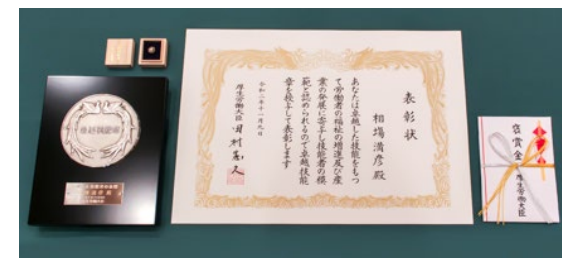 表彰状
相場満彦殿
あなたは卓越した技能をもつ
て労働者の福祉の増進及び産
業の発展に寄与し技能者の模
範と認められるので卓越技能
章を授与して表彰します
令和二年十一月九日
厚生労働大臣 田村憲久
褒賞金
厚生労働大臣